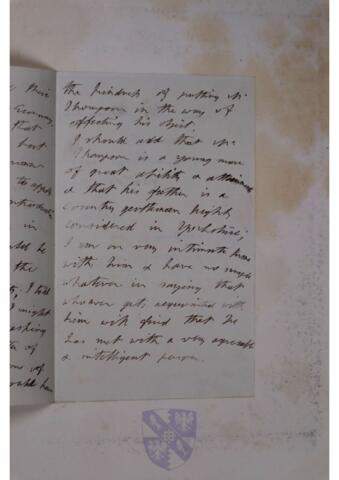 their
Germany,
that
best
man
to apply
in
could be
the
I told
I might
asking
of
of
the kindness of putting Mr
Thompson in the way of
effecting his object.
I should add that Mr
Thompson is a young man
of great ability &
& that his father is a
country gentleman highly
considered in Yorkshire;
I am on very intimate terms
with him & have no scruple
whatever in saying that
whoever gets acquainted with
him will find that he
has met with a very agreeable
& intelligent person.